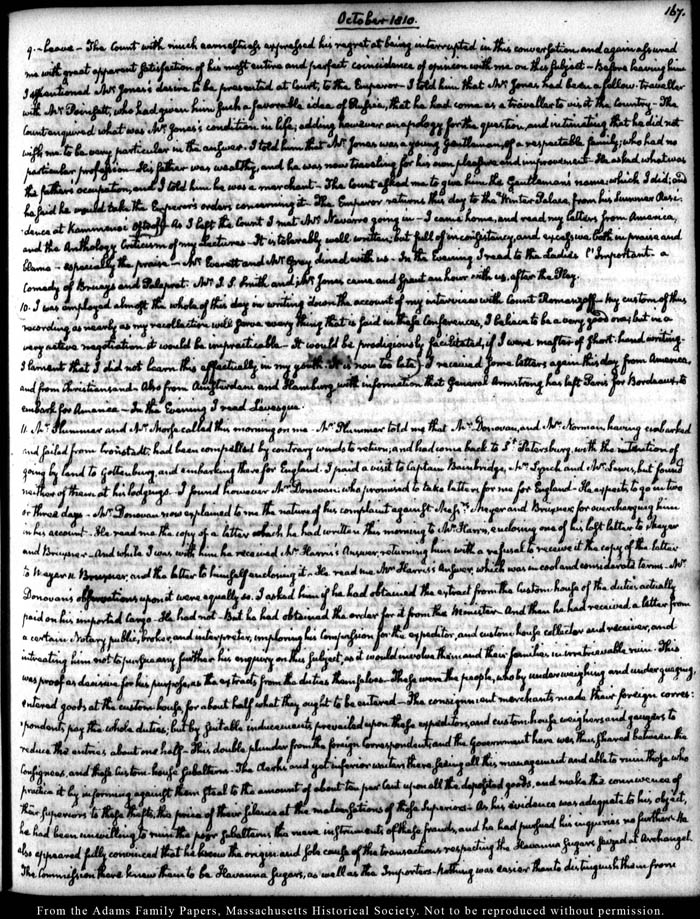 October 1810.
167.
9.— leave — The Count with much earnestness expressed his regret at being interrupted in this conversation and again assured
me with great apparent satisfaction of his most entire and perfect coincidence of opinion with me on this subject — Before leaving him
I mentioned Mr. Jones's desire to be presented at Court, to the Emperor — I told him that Mr. Jones had been a fellow-traveller
with Mr. Poinsett, who had given him such a favorable idea of Russia, that he had come as a traveller to visit the Country — The
Count enquired what was Mr. Jones's condition in life; adding however an apology for the question, and intimating that he did not
wish me to be very particular in the answer. I told him that Mr. Jones was a young Gentleman, of a respectable family; who had no
particular profession — His father was wealthy, and he was now traveling for his own pleasure and improvement — He asked what was
the father's occupation, and I told him he was a merchant — The Count asked me to give him the Gentleman's name; which I did; and
he said he would take the Emperor's orders concerning it. The Emperor returns this day to the Winter Palace, from his Summer Resi-
dence at Kammenoi Ostroff. As I left the Count I met Mr. Navarro going in — I came home, and read my letters from America,
and the Anthology Criticism of my Lectures — It is tolerably well written, but full of inconsistency, and excessive both in praise and
blame — especially the praise — Mr. Everett and Mr. Gray dined with us — In the Evening I read to the Ladies l'Important — a
Comedy of Brueys and Palaprat. Mr. J. S. Smith and Mr. Jones came and spent an hour with us, after the Play.
10. I was employed almost the whole of this day in writing down the account of my interview with Count Romanzoff — My custom of thus
recording as nearly as my recollection will serve every thing that is said in these Conferences, I believe to be a very good one; but in a
very active negotiation it would be impracticable — It would be prodigiously facilitated, if I were master of short-hand writing —
I lament that I did not learn this effectually in my youth. It is now too late. I received some letters again this day from America,
and from Christiansand — Also from Amsterdam and Hamburg, with information that General Armstrong has left Paris for Bordeaux, to
embark for America — In the Evening I read Levesque.
11. Mr. Plummer and Mr. Morse called this morning on me — Mr. Plummer told me that Mr. Donovan, and Mr. Norman, having embarked
and sailed from Cronstadt, had been compelled by contrary winds to return, and had come back to St. Petersburg, with the intention of
going by land to Gothenburg, and embarking there for England. I paid a visit to Captain Bainbridge, Mr. Lynch and Mr. Lewis, but found
neither of them at his lodgings. I found however Mr. Donovan; who promised to take letters for me for England — He expects to go in two
or three days — Mr. Donovan now explained to me the nature of his complaint against Messrs. Meyer and Bruxner, for overcharging him
in his account. He read me the copy of a letter which he had written this morning to Mr. Harris, enclosing one of his last letter to Meyer
and Bruxner — And while I was with him he received Mr. Harris's Answer, returning him with a refusal to receive it the copy of the letter
to Meyer & Bruxner, and the letter to himself enclosing it. He read me Mr. Harris's Answer, which was in cool and considerate terms — Mr.
Donovan's observations upon it were equally so. I asked him if he had obtained the extract from the Custom-house of the duties actually
paid on his imported Cargo — He had not — But he had obtained the order for it from the Minister — And then he had received a letter from
a certain Notary public, broker, and interpreter, imploring his Compassion for the expeditor, and custom-house collector and receiver, and
intreating him not to pursue any further his enquiry on this subject, as it would involve them and their families in irretrievable ruin. This
was proof as decisive for his purpose, as the extracts from the duties themselves — These were the people, who by underweighing and undergauging,
entered goods at the custom-house, for about half what they ought to be entered — The consignment merchants made their foreign corres-
pondents pay the whole duties; but by suitable inducements prevailed upon these expeditors, and custom-house weighers and gaugers to
reduce the entries about one half — This double plunder from the foreign Correspondent, and the Government here was thus shared between the
Consignees, and these Custom-house Subalterns. The Clerks and yet inferior writers there, seeing all this management and able to ruin those who
practice it by informing against them steal to the amount of about ten per Cent upon all the deposited goods, and make the connivance of
their superiors to these thefts, the price of their silence at the malversations of these superiors — As his evidence was adequate to his object,
he had been unwilling to ruin the poor subalterns the mere instruments of these frauds, and he had pushed his inquiries no further — He
also appeared fully convinced that he knew the origin and sole cause of the transactions respecting the Havanna Sugars seized at Archangel.
The Commission there knew them to be Havanna Sugars, as well as the Importers — nothing was easier than to distinguish them from
From the Adams Family Papers, Massachusetts Historical Society. Not to be reproduced without permission.